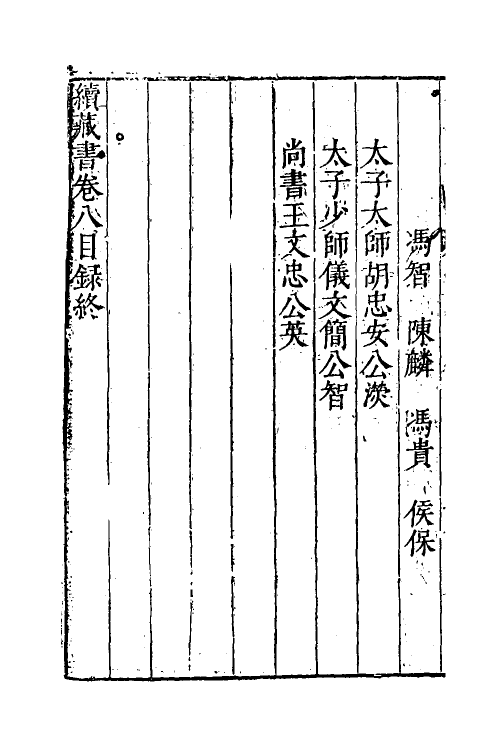 馮智　陳麟　馮貴　侯保
太子太師胡忠安公濙
太子少師儀文簡公智
尚書王文忠公英
續藏書卷八目録終